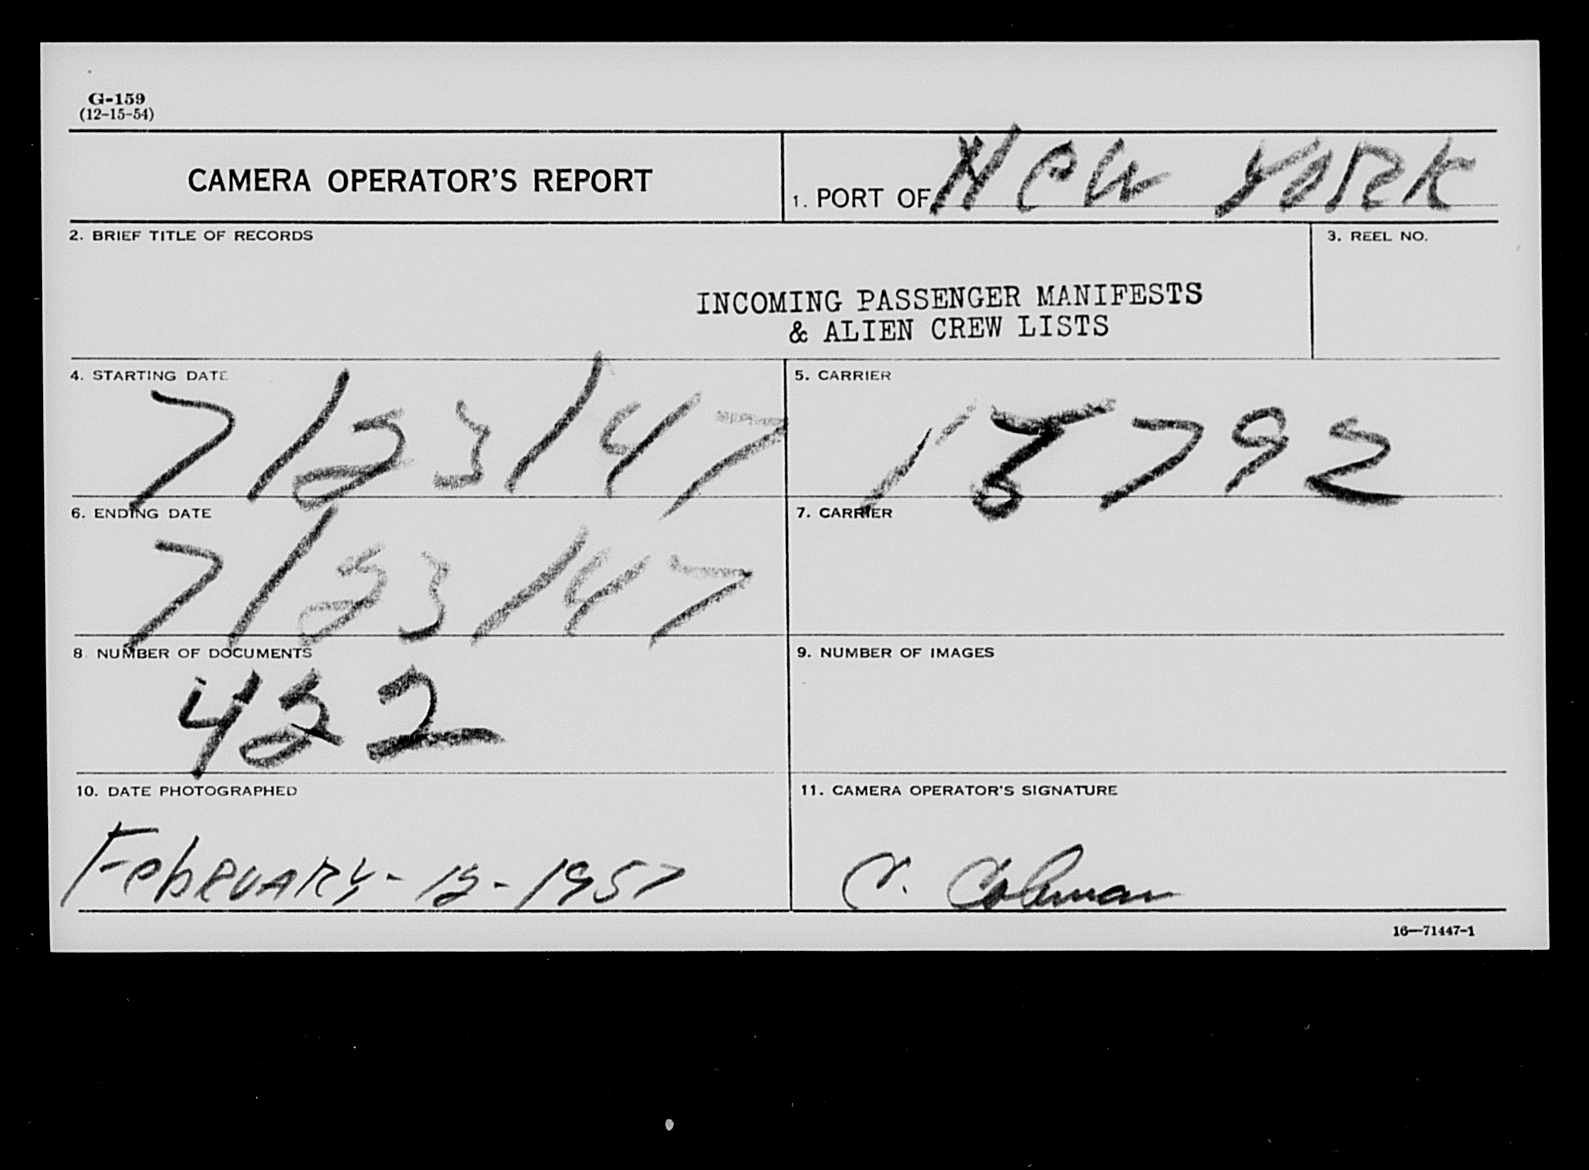 G-159
(12-15-54)
CAMERA OPERATOR'S REPORT
1. PORT OF New YORK
2. BRIEF TITLE OF RECORDS
3. REEL NO.
INCOMING PASSENGER MANIFESTS
& ALIEN CREW LISTS
4. STARTING DATE
7/23/47
5. CARRIER
6. ENDING DATE
7/23/47
7. CARRIER
8. NUMBER OF DOCUMENTS
422
9. NUMBER OF IMAGES
10. DATE PHOTOGRAPHED
FebRUARY-12-1957
11. CAMERA OPERATOR'S SIGNATURE
Coleman
16—71447-1